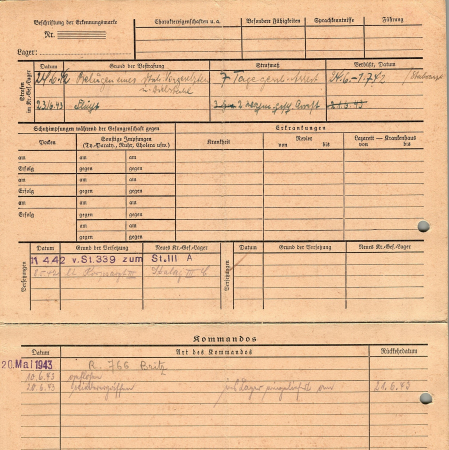 Beschriftung der Erkennungsmarke
Nr.
Lager:
Charaktereigenschaften u. a.
Besondere Fähigkeiten
Sprachkenntnisse
Führung
Strafen im Kr.-Gef.-Lager
Datum
Grund der Bestrafung
Strafmaß
Verbüßt, Datum
24.6.42
7 Tage
24.6.-1.7.42
23.6.43
Flucht
21.6.43
Schutzimpfungen während der Gefangenschaft gegen
Pocken
Sonstige Impfungen
(Ty.-Paraty., Ruhr, Cholera usw.)
Erkrankungen
Krankheit
Revier
von bis
Lazarett — Krankenhaus
von bis
am am am
Erfolg gegen gegen
am am am
Erfolg gegen gegen
am am am
Erfolg gegen gegen
am am
gegen gegen
Versetzungen
Datum
Grund der Versetzung
Neues Kr.-Gef.-Lager
Versetzungen
Datum
Grund der Versetzung
Neues Kr.-Gef.-Lager
11.4.42 v.St.339 zum St.III A
Stalag III
Kommandos
Datum
Art des Kommandos
Rückkehrdatum
20. Mai 1943 R. 766 Britz
10.6.43 entflohen
20.6.43 ins Lager 21.6.43